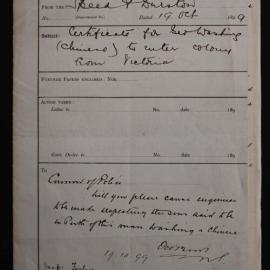 FROM THE Speed & Durston
No. Dated 19 Oct 1899
Subject: Certificate for Geo Washing
(Chinese) to enter colony
from Victoria
FURTHER PAPERS ENCLOSED: Nos.
ACTION TAKEN:
Letter to 189
Cov. Order to 189
To
Commr of Police
Will you please cause enquiries
to be made respecting the
in Perth of this man Washing a Chinese
19.10.99